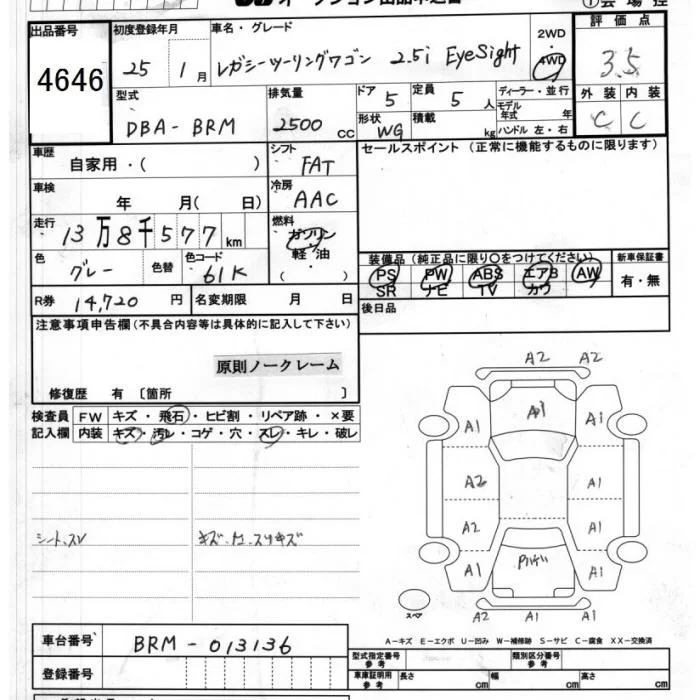 出品番号 4646
初度登録年月 25 1月
車名・グレード レガシーツーリングワゴン 2.5i EyeSight
2WD 4WD
評価点 3.5
外装 内装
C C
型式 DBA-BRM
排気量 2500 cc
ドア 5 定員 5 人
形状 WG 積載 kg
ディーラー・並行
モデル年式 年
ハンドル 左・右
車歴 自家用・( )
シフト FAT
セールスポイント (正常に機能するものに限ります)
車検 年 月( 日)
冷房 AAC
走行 13万8千577km
燃料 ガソリン 軽・油 ( )
色 グレー 色替 色コード 61K
装備品 (純正品に限り〇をつけてください) 新車保証書
PS PW ABS エアB AW 有・無
SR ナビ TV カワ
R券 14,720 円 名変期限 月 日
後日品
注意事項申告欄 (不具合内容等は具体的に記入して下さい)
原則ノークレーム
修復歴 有 〔箇所 〕
検査員 FW キズ・飛石・ヒビ割・リペア跡・×要
記入欄 内装 キズ・汚レ・コゲ・穴・スレ・キレ・破レ
A2 A2
A1 A1 A1
A2 A1
A2 A1
A1 A1
A2 A1 A1
シート、スレ
スペア
A-キズ E-エクボ U-凹み W-補修跡 S-サビ C-腐食 XX-交換済
車台番号 BRM-013136
型式指定番号 参考 類別区分番号 参考
登録番号
車庫証明用 参考 長さ cm 幅 cm 高さ cm